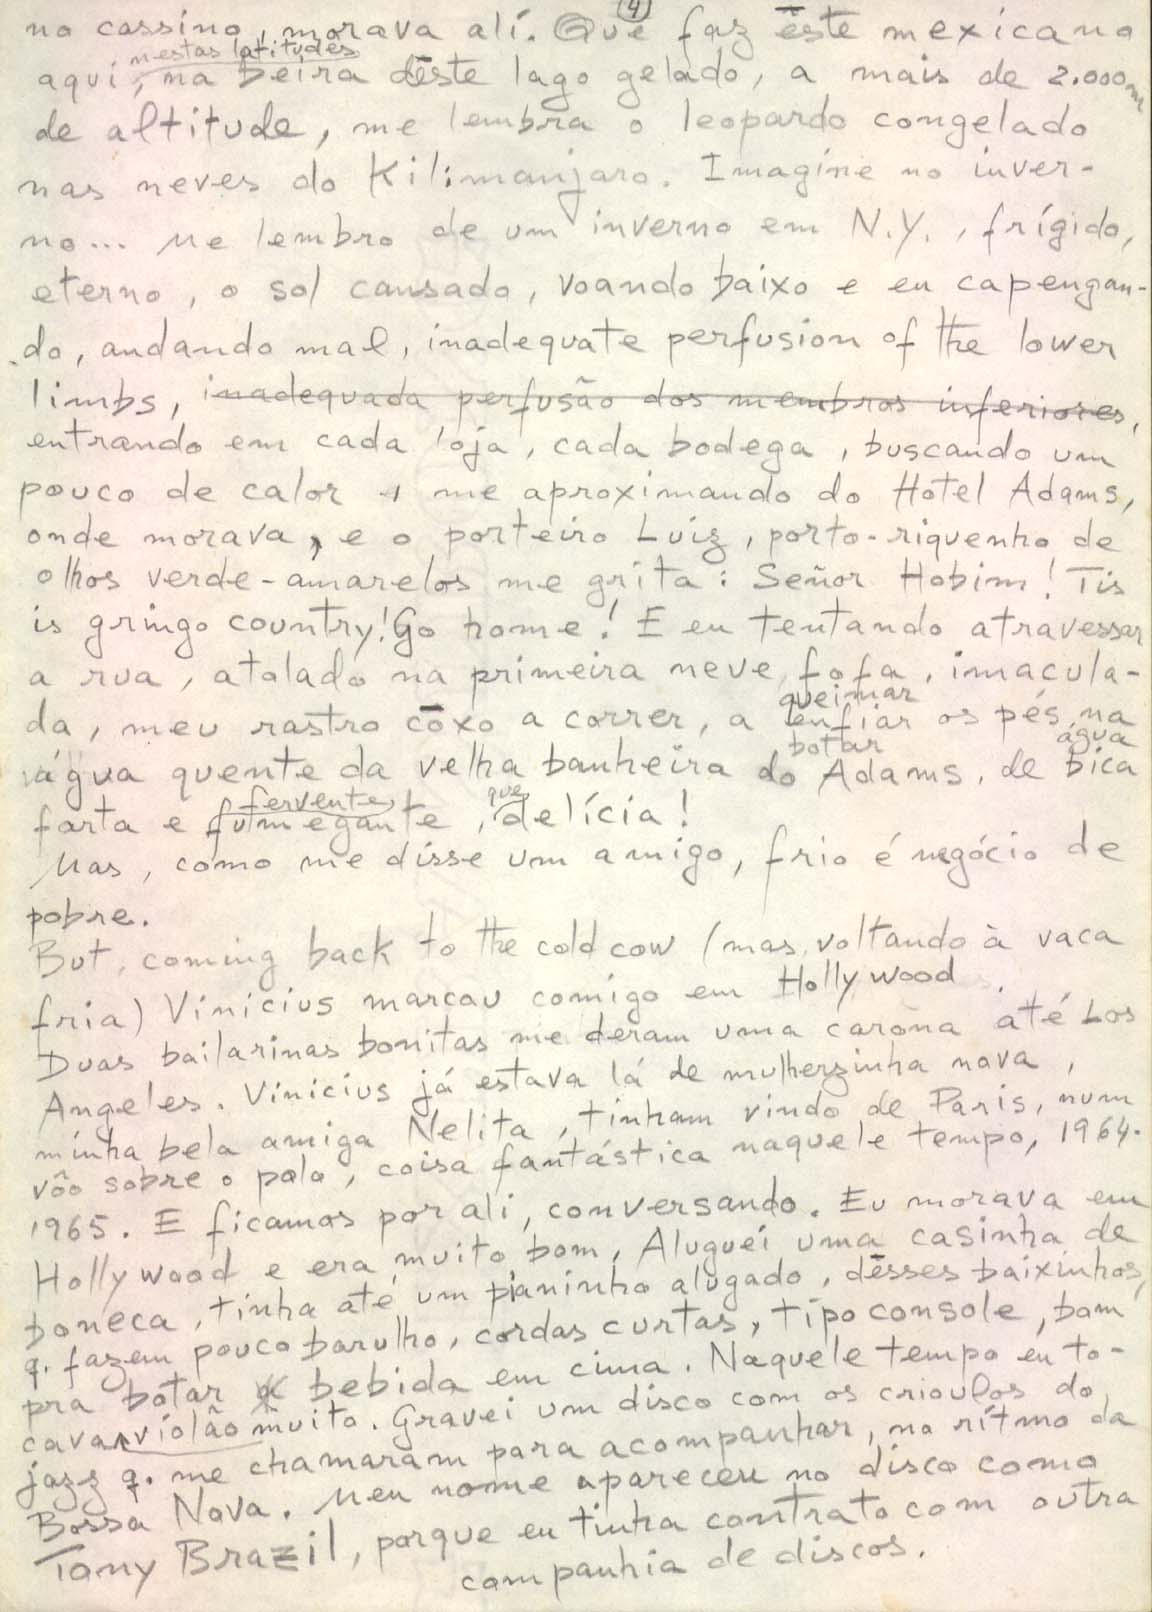 (4)
no cassino, morava alí. Que faz êste mexicano
nestas latitudes
aquí, na beira dêste lago gelado, a mais de 2.000m
de altitude, me lembra o leopardo congelado
nas neves do Kilimanjaro. Imagine no inver-
no... Me lembro de um inverno em N.Y., frígido,
eterno, o sol cansado, voando baixo e eu capengan-
do, andando mal, inadequate perfusion of the lower
limbs, inadequada perfusão dos membros inferiores,
entrando em cada loja, cada bodega, buscando um
pouco de calor e me aproximando do Hotel Adams,
onde morava, e o porteiro Luiz, porto-riquenho de
olhos verde-amarelos me grita: Señor Hobim! Tis
is gringo country! Go home! E eu tentando atravessar
a rua, atolado na primeira neve, fofa, imacula-
queimar
da, meu rastro côxo a correr, a enfiar os pés, na
botar água
água quente da velha banheira do Adams, de bica
fervente, que
farta e fumegante, delícia!
Mas, como me disse um amigo, frio é negócio de
pobre.
But, coming back to the cold cow (mas, voltando à vaca
fria) Vinicius marcou comigo em Hollywood.
Duas bailarinas bonitas me deram uma carona até Los
Angeles. Vinicius já estava lá de mulherzinha nova,
minha bela amiga Nelita, tinham vindo de Paris, num
vôo sobre o polo, coisa fantástica naquele tempo, 1964-
1965. E ficamos por ali, conversando. Eu morava em
Hollywood e era muito bom, Aluguei uma casinha de
boneca, tinha até um pianinho alugado, dêsses baixinhos,
q. fazem pouco barulho, cordas curtas, tipo console, bom
pra botar bebida em cima. Naquele tempo eu to-
cava violão muito. Gravei um disco com os crioulos do
jazz q. me chamaram para acompanhar, no rítmo da
Bossa Nova. Meu nome apareceu no disco como
Tony Brazil, porque eu tinha contrato com outra
companhia de discos.